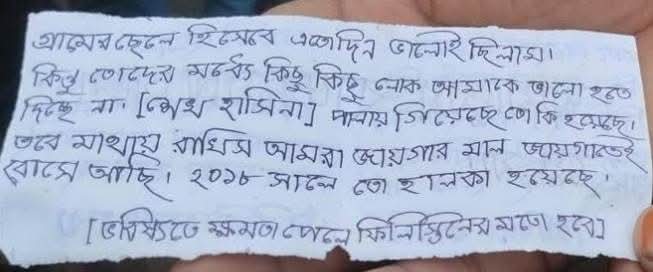 গ্রামের ছেলে হিসেবে এতোদিন ভালোই ছিলাম।
কিন্তু তোদের মধ্যেই কিছু কিছু লোক আমাকে ভালো হতে
দিচ্ছে না। [শেখ হাসিনা] পালায় গিয়েছে তো কি হয়েছে।
তবে মাথায় রাখিস আমরা জায়গার মাল জায়গাতেই
বোসে আছি। ২০১৮ সালে তো হালকা হয়েছে।
[ভবিষ্যিতে ক্ষমতা পেলে ফিলিস্তিনের মতো হবে]